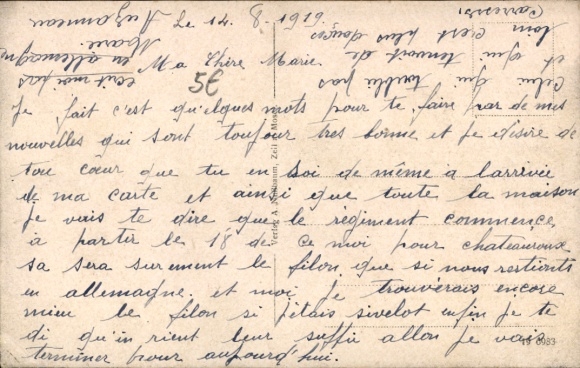 Le 14. 8. 1919.
Ma Chère Marie.
Je fait c'est quelques mots pour te faire par de mes
nouvelles qui sont toujour tres bonne et je désire de
tou cœur que tu en soi de même a larrivée
de ma carte et ainsi que toute la maison
Je vais te dire que le régiment commence
a partir le 18 de ce moi pour chateauroux
sa sera surement le filon que si nous restions
en allemagne. et moi je trouverais encore
mieu le filon si jétais sivelot enfin je te
di qu'in rient leur suffit allon je vais
terminer pour aujourd'hui.
Celui qui toubli pas
et qui tenvoit de
loin c'est plus douces
Caresses.
Marie.
ecrit moi pas
en allemagne
5€
Verlag A. Nußbaum, Zell a. Mosel
19 6983